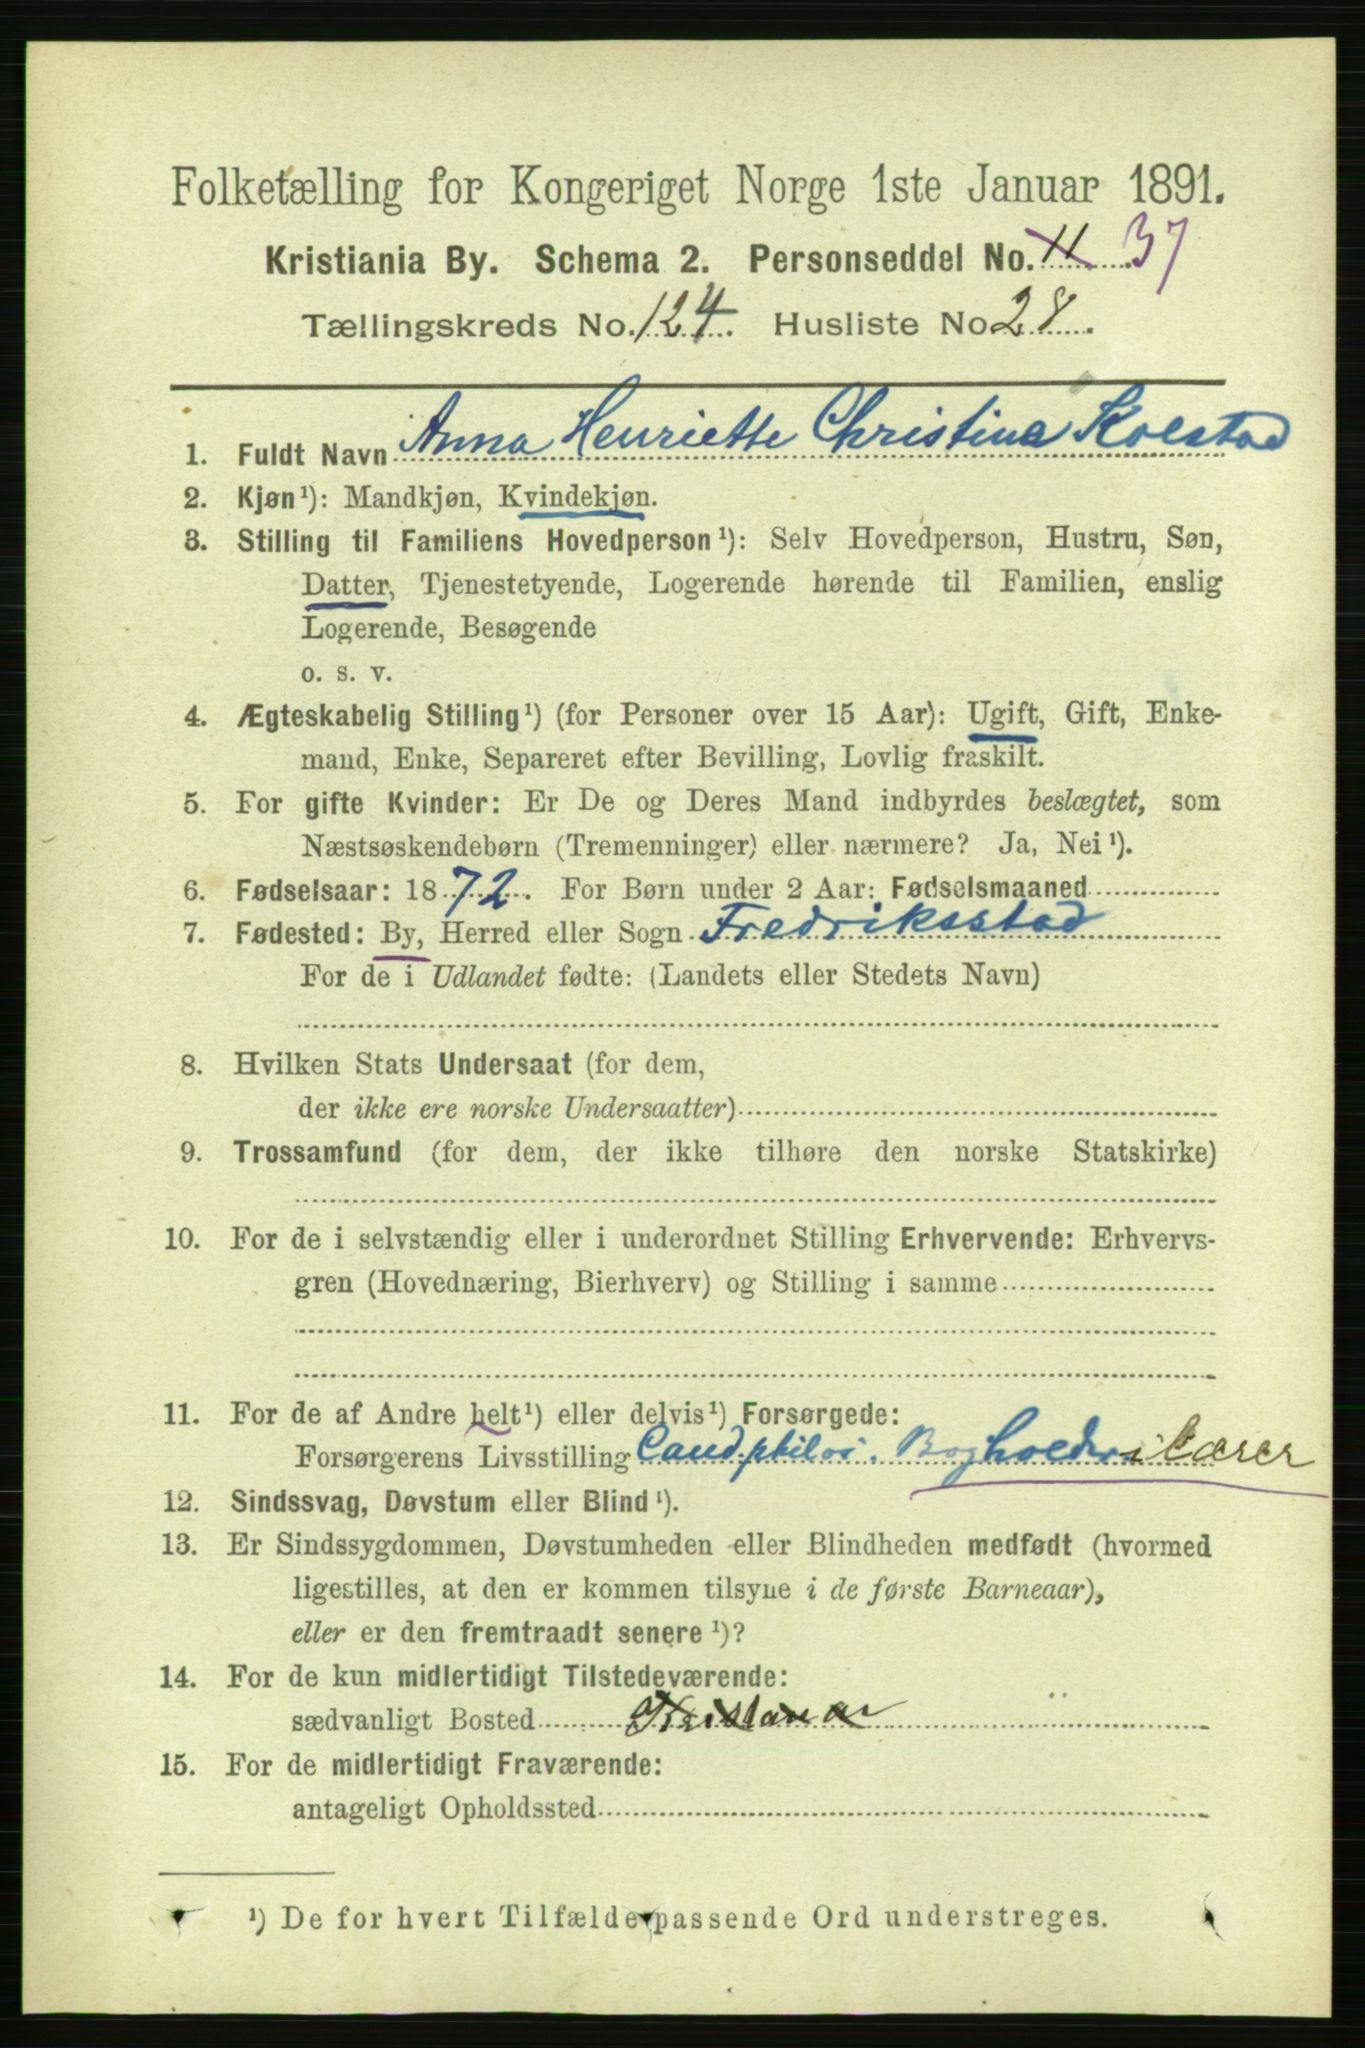 Folketælling for Kongeriget Norge 1ste Januar 1891.
Kristiania By. Schema 2. Personseddel No. 11 37
Tællingskreds No. 124. Husliste No 28.
1. Fuldt Navn Anna Henriette Christine Kolstad
2. Kjøn¹): Mandkjøn, Kvindekjøn.
3. Stilling til Familiens Hovedperson¹): Selv Hovedperson, Hustru, Søn,
Datter, Tjenestetyende, Logerende hørende til Familien, enslig
Logerende, Besøgende
o. s. v.
4. Ægteskabelig Stilling¹) (for Personer over 15 Aar): Ugift, Gift, Enke-
mand, Enke, Separeret efter Bevilling, Lovlig fraskilt.
5. For gifte Kvinder: Er De og Deres Mand indbyrdes beslægtet, som
Næstsøskendebørn (Tremenninger) eller nærmere? Ja, Nei¹).
6. Fødselsaar: 1872. For Børn under 2 Aar: Fødselsmaaned
7. Fødested: By, Herred eller Sogn Fredriksstad
For de i Udlandet fødte: (Landets eller Stedets Navn)
8. Hvilken Stats Undersaat (for dem,
der ikke ere norske Undersaatter)
9. Trossamfund (for dem, der ikke tilhøre den norske Statskirke)
10. For de i selvstændig eller i underordnet Stilling Erhvervende: Erhvervs-
gren (Hovednæring, Bierhverv) og Stilling i samme
11. For de af Andre helt¹) eller delvis¹) Forsørgede:
Forsørgerens Livsstilling Cand. philos. Bogholderilærer
12. Sindssvag, Døvstum eller Blind¹).
13. Er Sindssygdommen, Døvstumheden eller Blindheden medfødt (hvormed
ligestilles, at den er kommen tilsyne i de første Barneaar),
eller er den fremtraadt senere¹)?
14. For de kun midlertidigt Tilstedeværende:
sædvanligt Bosted
15. For de midlertidigt Fraværende:
antageligt Opholdssted
¹) De for hvert Tilfælde passende Ord understreges.